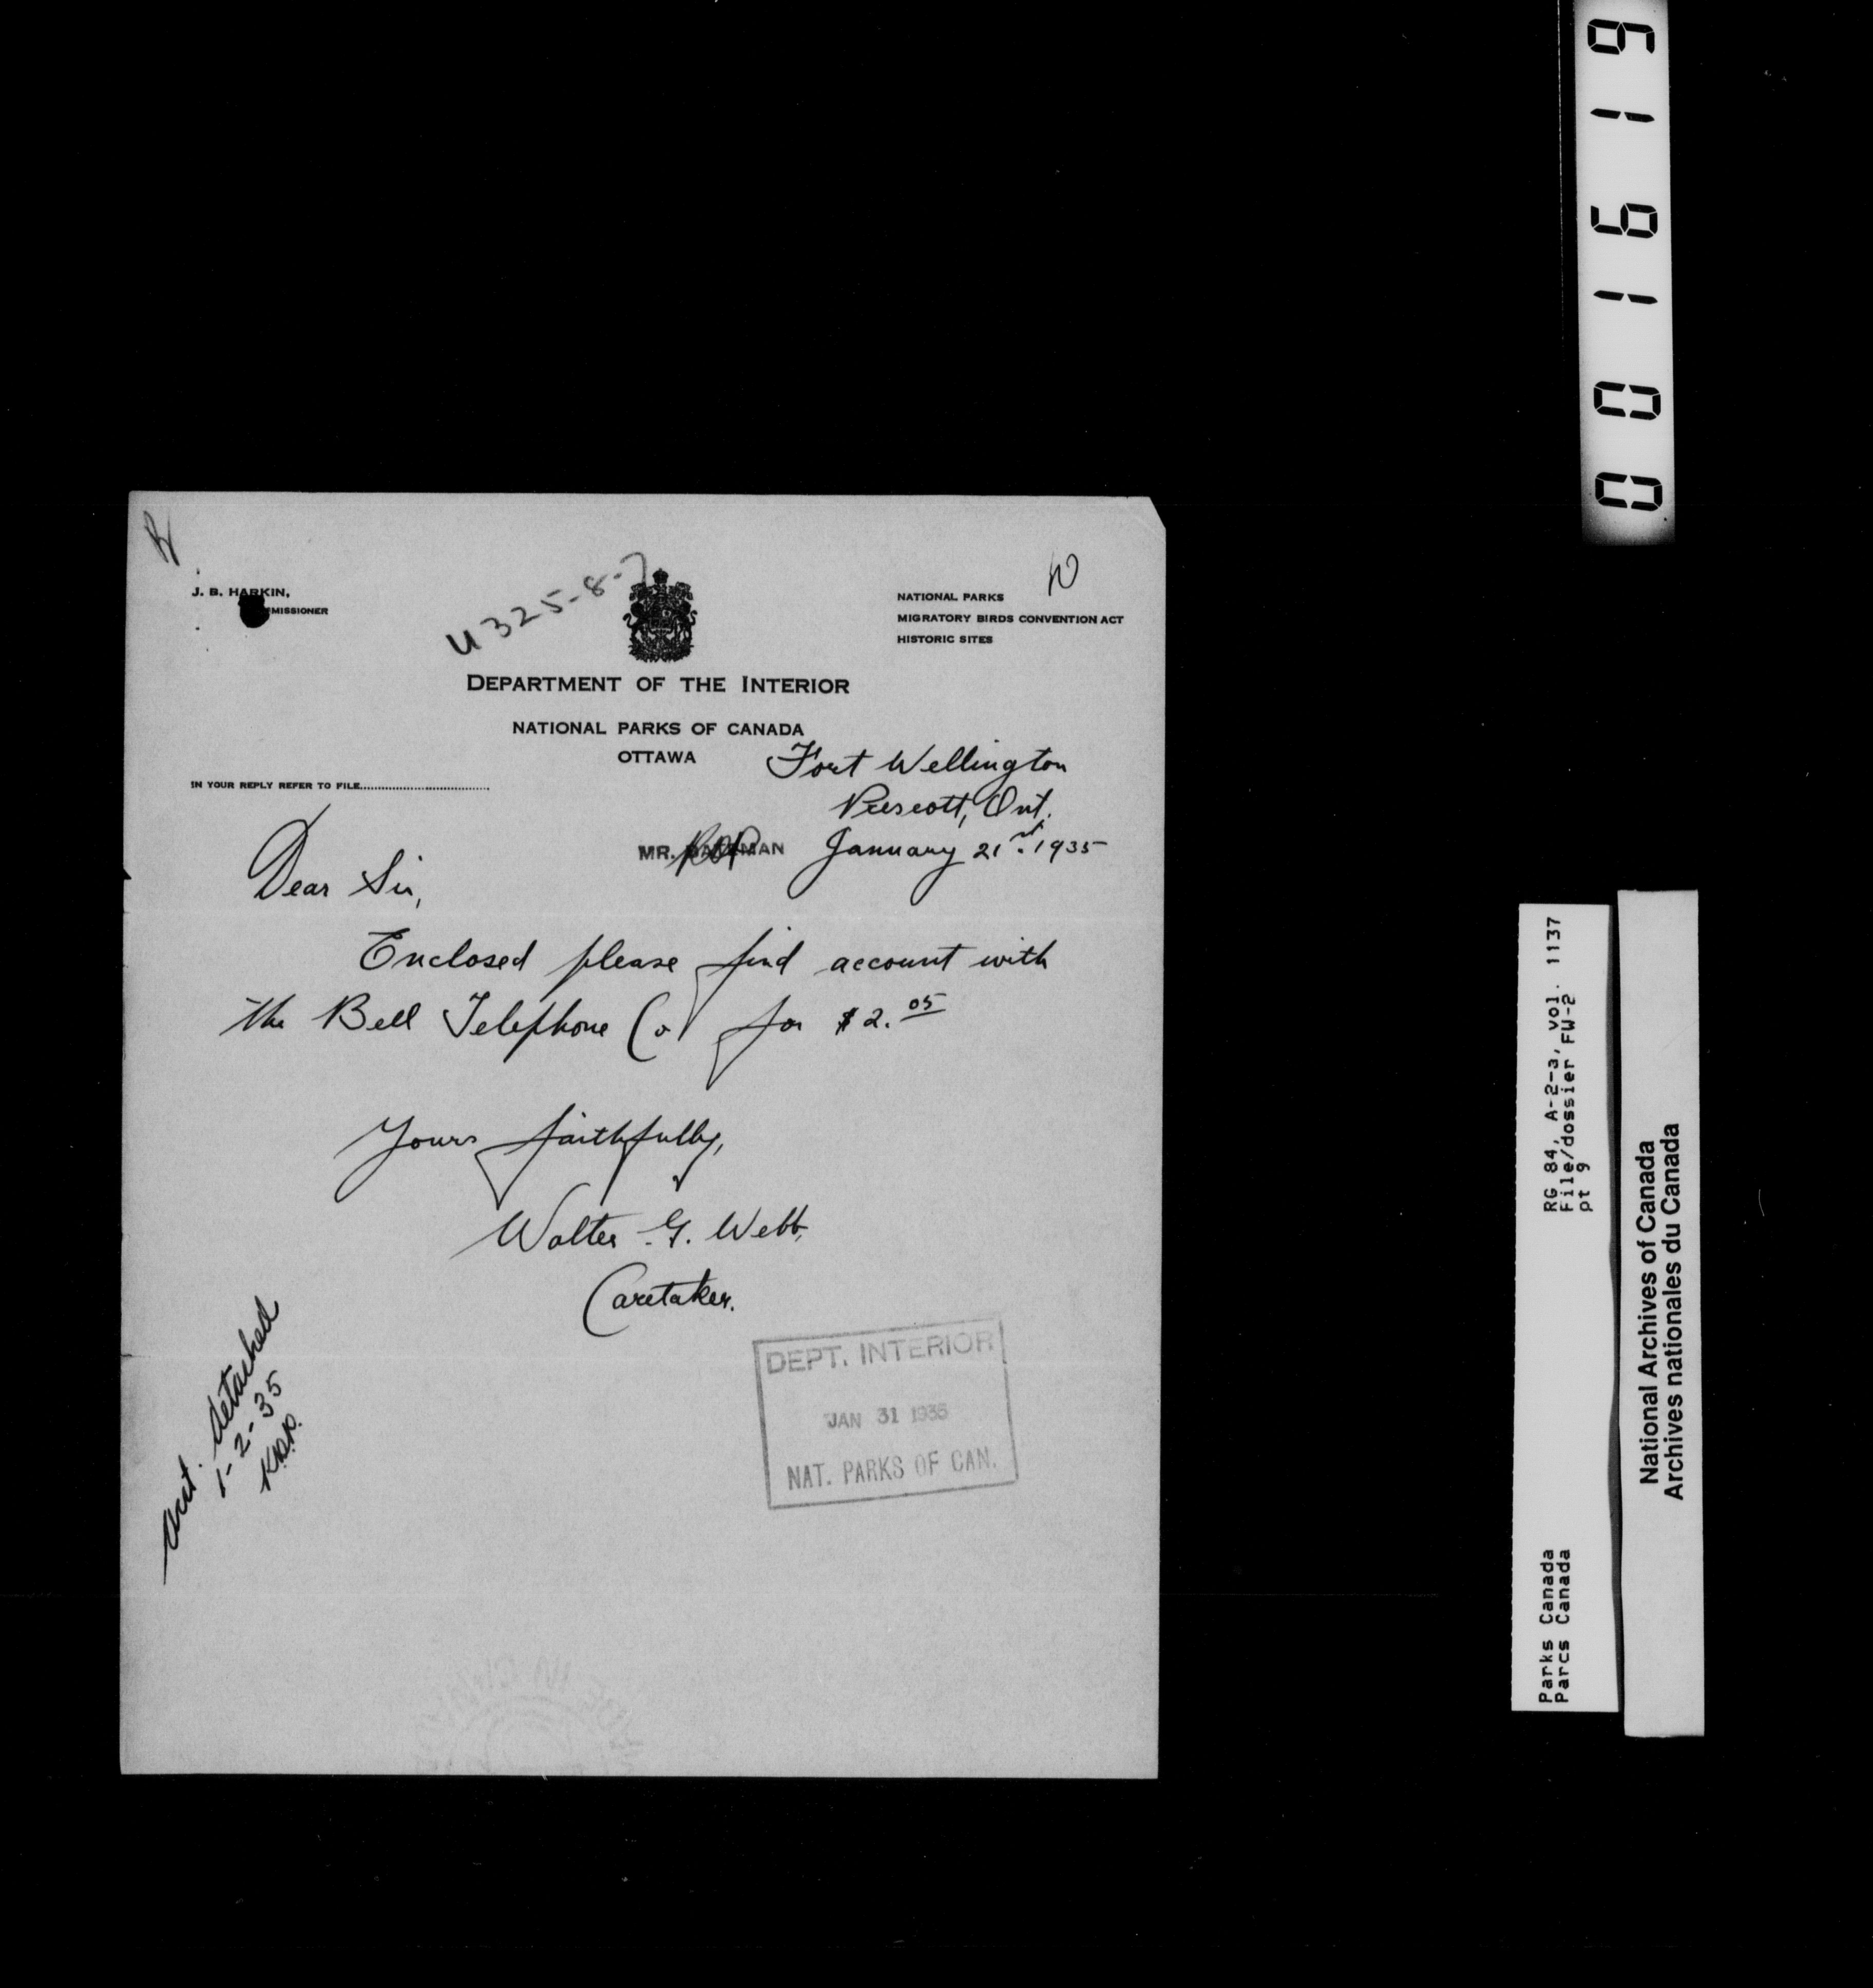 J. B. HARKIN,
U325-8-7
NATIONAL PARKS
MIGRATORY BIRDS CONVENTION ACT
HISTORIC SITES
DEPARTMENT OF THE INTERIOR
NATIONAL PARKS OF CANADA
OTTAWA
IN YOUR REPLY REFER TO FILE
Fort Wellington
Prescott, Ont.
MR. January 21st. 1935
Dear Sir,
Enclosed please find account with
the Bell Telephone Co for $2.05
Yours faithfully,
Walter G. Webb,
Caretaker.
detached
1-2-35
DEPT. INTERIOR
JAN 31 1935
NAT. PARKS OF CAN.
001619
RG 84, A-2-3, vol. 1137
File/dossier FW-2
pt 9
Parks Canada
Parcs Canada
National Archives of Canada
Archives nationales du Canada